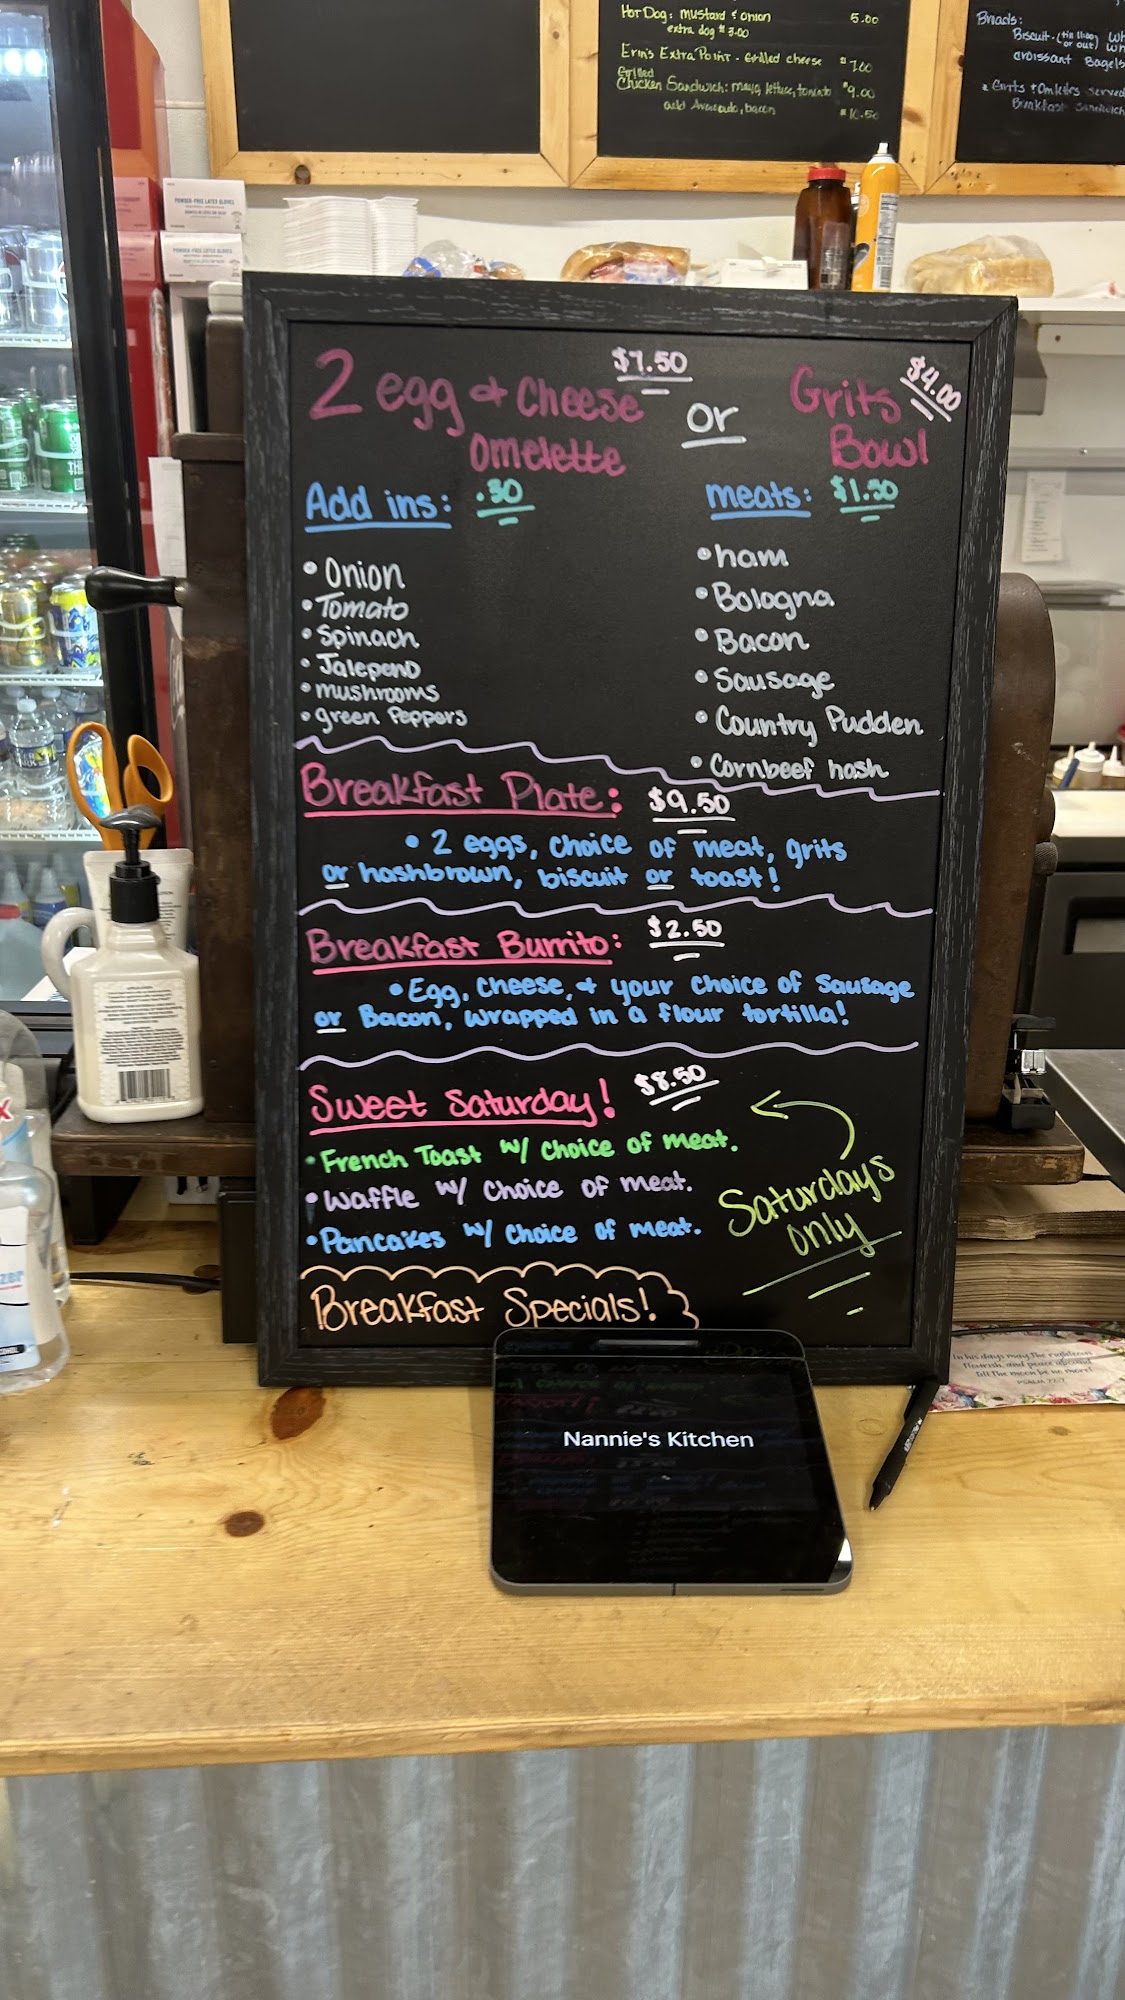 Hot Dog: mustard & onion 5.00
extra dog $3.00
Erin's Extra Point - Grilled cheese $7.00
Grilled
Chicken Sandwich: mayo, lettuce, tomato $9.00
add Avocado, bacon $10.50
Breads:
croissant Bagels
POWDER-FREE LATEX GLOVES
POWDER-FREE LATEX GLOVES
$7.50
$4.00
2 egg & Cheese or Grits
omelette Bowl
Add ins: .50
meats: $1.50
• Onion
• Tomato
• Spinach
• Jalepeno
• mushrooms
• green Peppers
• ham
• Bologna
• Bacon
• Sausage
• Country Pudden
• Cornbeef hash
Breakfast Plate: $9.50
• 2 eggs, choice of meat, grits
or hashbrown, biscuit or toast!
Breakfast Burrito: $2.50
• Egg, Cheese, & your choice of Sausage
or Bacon, wrapped in a flour tortilla!
Sweet Saturday! $8.50
• French Toast w/ choice of meat.
• Waffle w/ choice of meat.
• Pancakes w/ choice of meat.
Saturdays
only
Breakfast Specials!
Nannie's Kitchen
In his days may the righteous
flourish, and peace abound
till the moon be no more!
PSALM 72:7